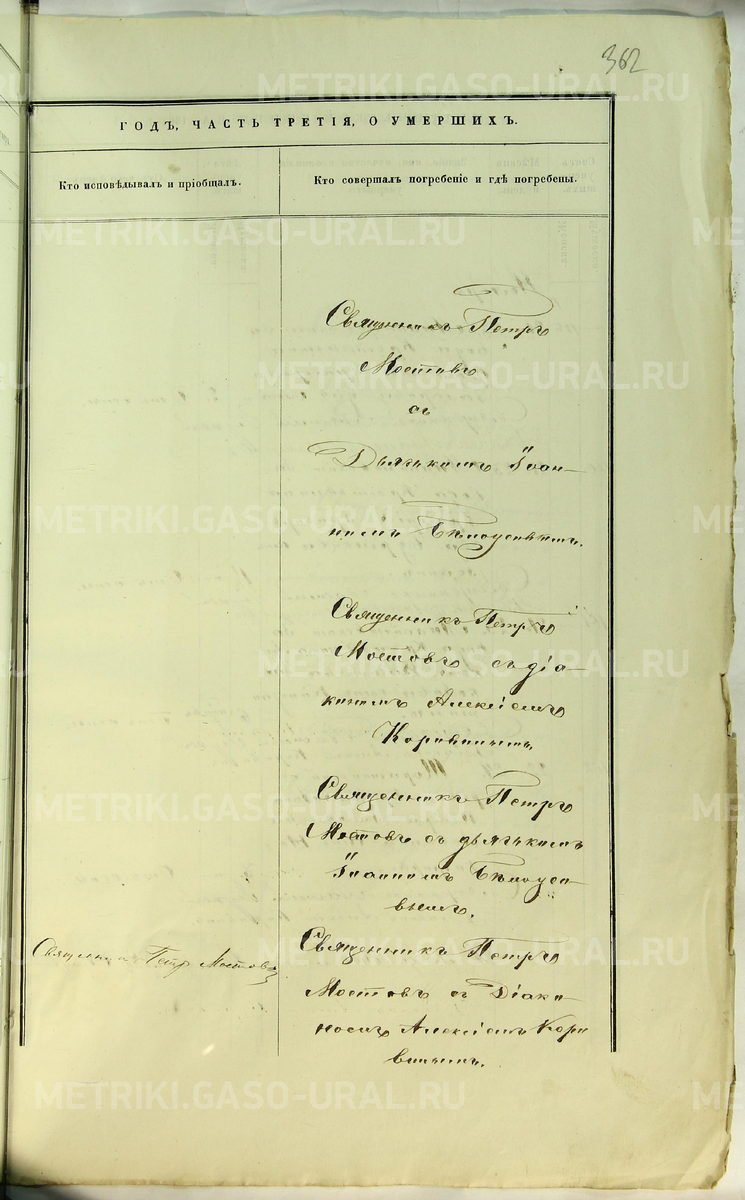 362
ГОДЪ, ЧАСТЬ ТРЕТІЯ, О УМЕРШИХЪ.
Кто исповѣдывалъ и пріобщалъ.
Кто совершалъ погребеніе и гдѣ погребены.
Священникъ Петръ
Мостовъ
съ
Дьячкомъ Іоан-
номъ Бѣлоусовымъ.
Священникъ Петръ
Мостовъ съ діа-
кономъ Алексіемъ
Коровинымъ.
Священникъ Петръ
Мостовъ съ дьячкомъ
Іоанномъ Бѣлоусо-
вымъ.
Священникъ Петръ Мостовъ
Священникъ Петръ
Мостовъ съ Діако-
номъ Алексіемъ Коро
винымъ.
METRIKI.GASO-URAL.RU